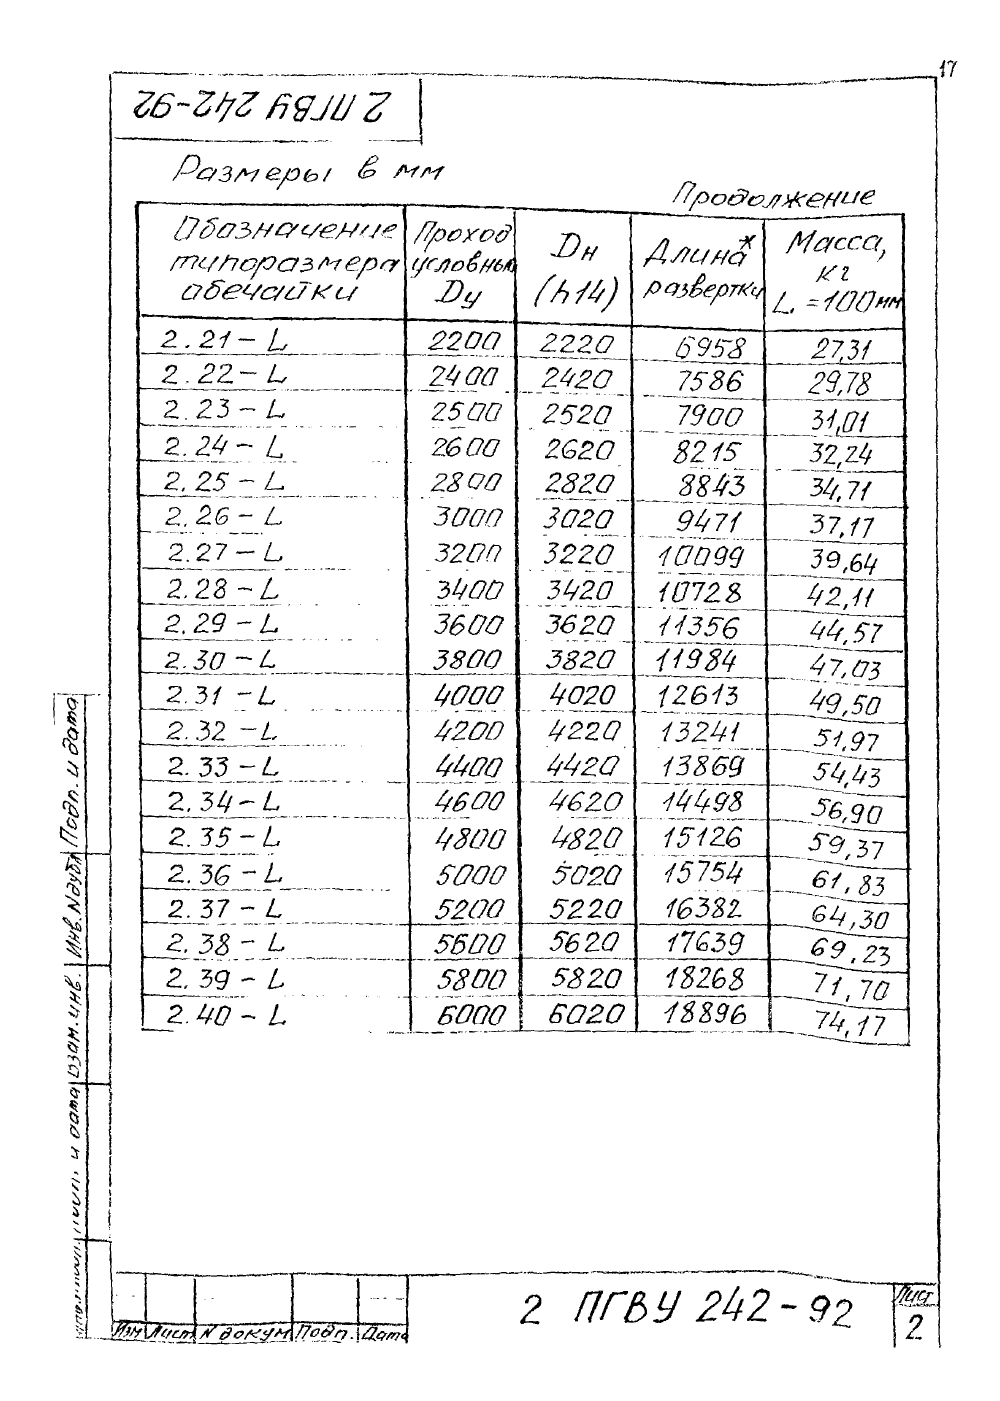 17
2 ПГВУ 242-92
Размеры в мм
Продолжение
Обозначение типоразмера обечайки | Проход условный Dу | Dн (h14) | Длина* развертки | Масса, кг L = 100мм
2.21 - L 2200 2220 6958 27,31
2.22 - L 2400 2420 7586 29,78
2.23 - L 2500 2520 7900 31,01
2.24 - L 2600 2620 8215 32,24
2.25 - L 2800 2820 8843 34,71
2.26 - L 3000 3020 9471 37,17
2.27 - L 3200 3220 10099 39,64
2.28 - L 3400 3420 10728 42,11
2.29 - L 3600 3620 11356 44,57
2.30 - L 3800 3820 11984 47,03
2.31 - L 4000 4020 12613 49,50
2.32 - L 4200 4220 13241 51,97
2.33 - L 4400 4420 13869 54,43
2.34 - L 4600 4620 14498 56,90
2.35 - L 4800 4820 15126 59,37
2.36 - L 5000 5020 15754 61,83
2.37 - L 5200 5220 16382 64,30
2.38 - L 5600 5620 17639 69,23
2.39 - L 5800 5820 18268 71,70
2.40 - L 6000 6020 18896 74,17
Подп. и дата
Инв. N дубл
Взам. инв.
и дата
Изм Лист N докум Подп. Дата
2 ПГВУ 242-92
Лист
2